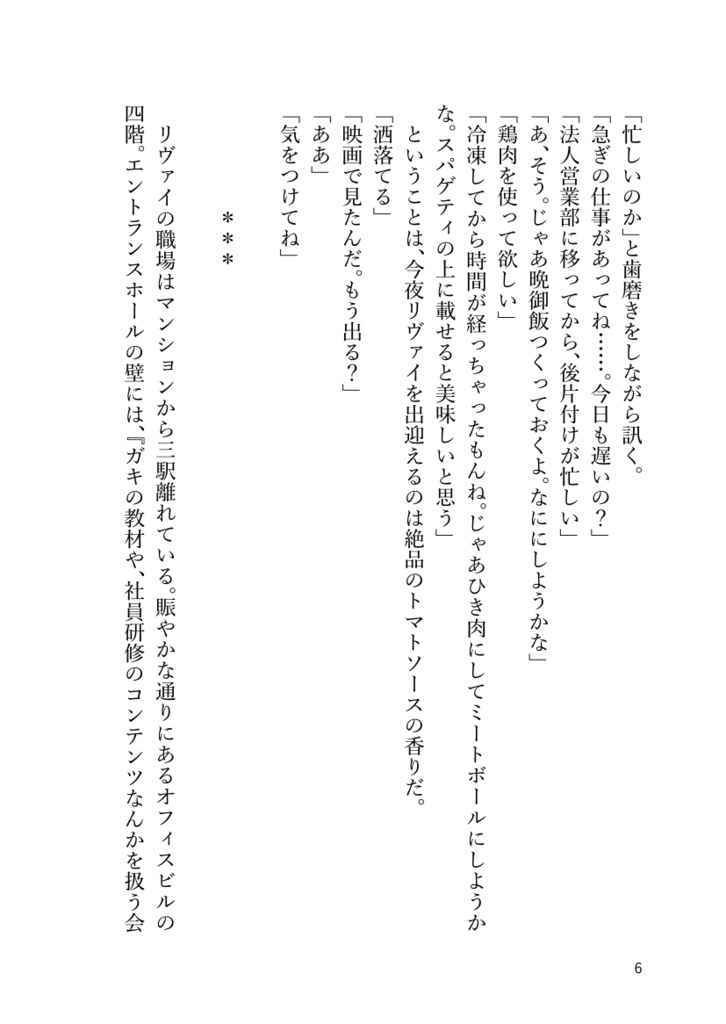 「忙しいのか」と歯磨きをしながら訊く。
「急ぎの仕事があってね……。今日も遅いの？」
「法人営業部に移ってから、後片付けが忙しい」
「あ、そう。じゃあ晩御飯つくっておくよ。なににしようかな」
「鶏肉を使って欲しい」
「冷凍してから時間が経っちゃったもんね。じゃあひき肉にしてミートボールにしようか
な。スパゲティの上に載せると美味しいと思う」
　ということは、今夜リヴァイを出迎えるのは絶品のトマトソースの香りだ。
「洒落てる」
「映画で見たんだ。もう出る？」
「ああ」
「気をつけてね」
＊＊＊
　リヴァイの職場はマンションから三駅離れている。賑やかな通りにあるオフィスビルの
四階。エントランスホールの壁には、『ガキの教材や、社員研修のコンテンツなんかを扱う会
6